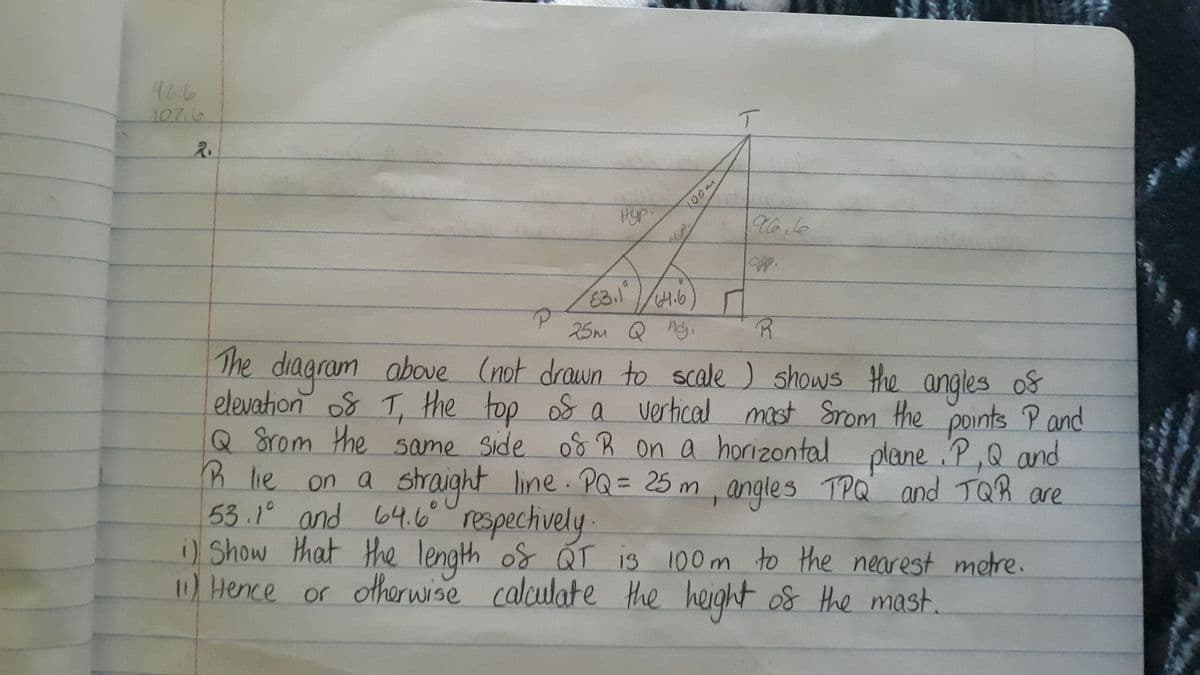 96.6
107.6
2.
T
100m
Hyp.
Hyp.
96.6
opp.
53.1° 64.6°
P 25m Q Adj. R
The diagram above (not drawn to scale ) shows the angles of
elevation of T, the top of a vertical mast from the points P and
Q from the same side of R on a horizontal plane. P, Q and
R lie on a straight line. PQ = 25 m, angles TPQ and TQR are
53.1° and 64.6° respectively.
i) Show that the length of QT is 100m to the nearest metre.
ii) Hence or otherwise calculate the height of the mast.